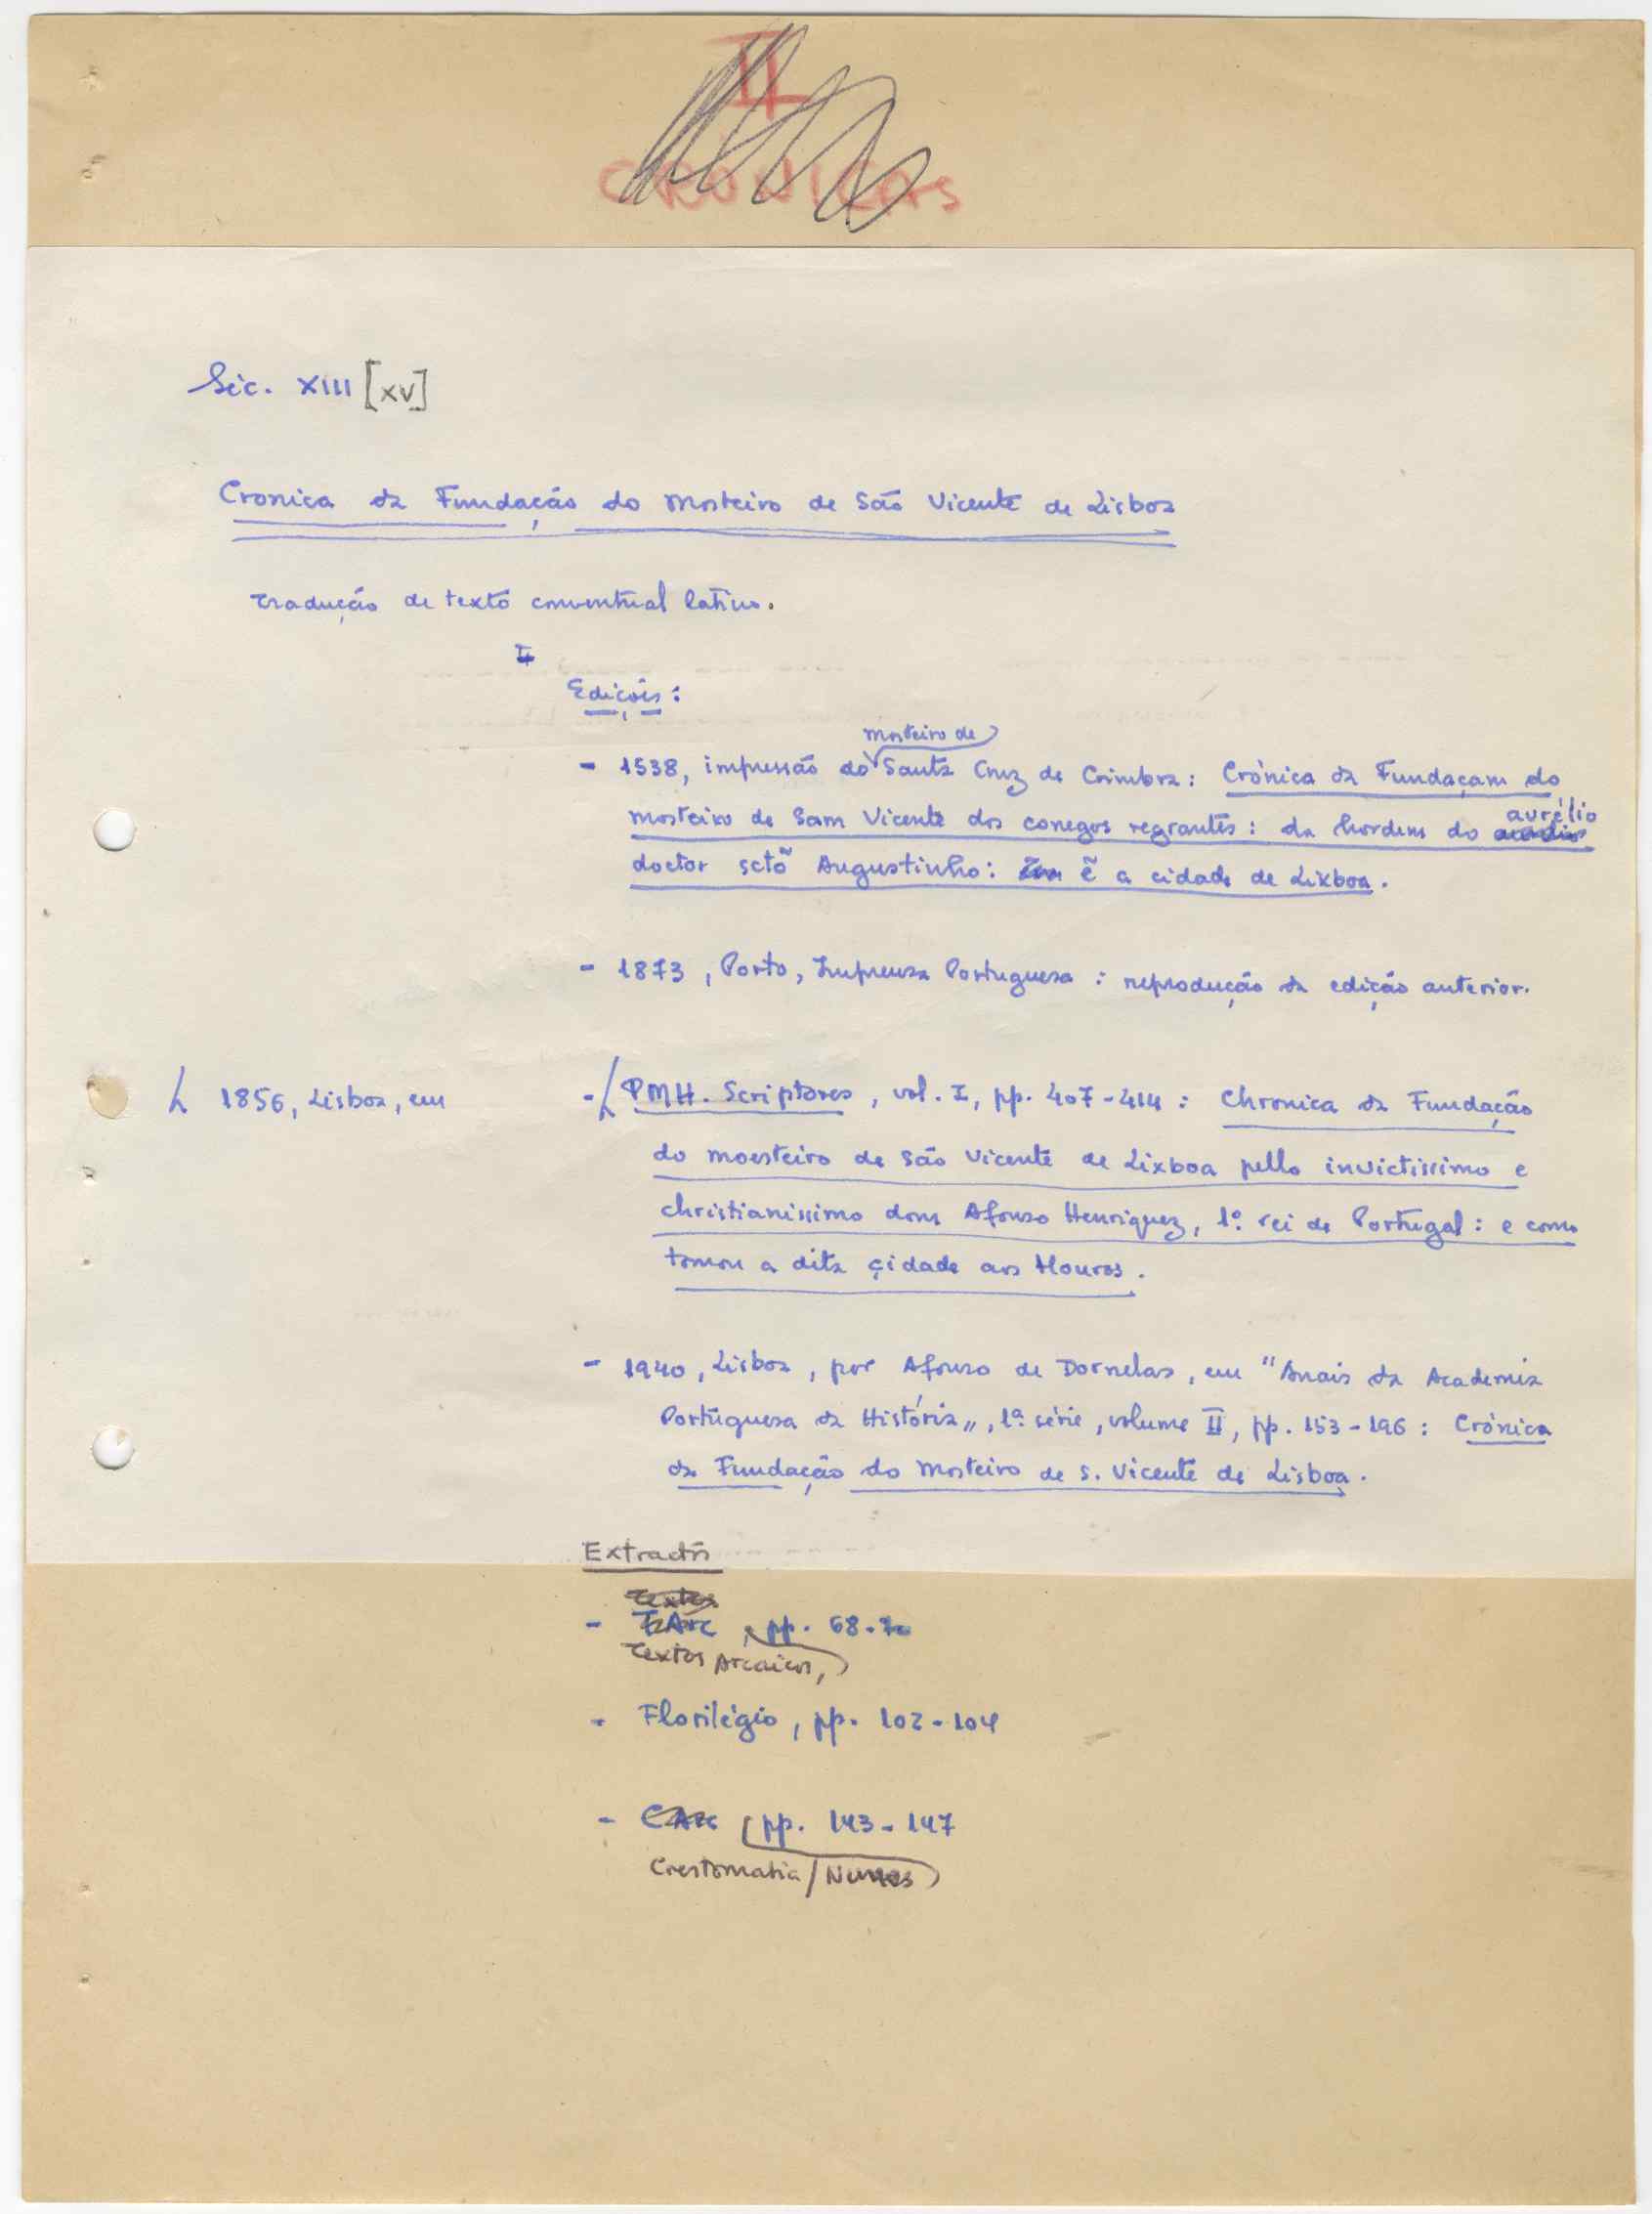 II
CRONICAS
Séc. XIII [XV]
Cronica da Fundação do Mosteiro de São Vicente de Lisboa
Tradução de texto conventual latino.
Edições:
mosteiro de
- 1538, impressão do Santa Cruz de Coimbra: Crónica da Fundaçam do
mosteiro de Sam Vicente dos conegos regrantes: da hordem do aurélio
doctor sctõ Augustinho: ẽ a cidade de Lixboa.
- 1873, Porto, Imprensa Portuguesa: reprodução da edição anterior.
1856, Lisboa, em
- PMH. Scriptores, vol. I, pp. 407-414: Chronica da Fundação
do moesteiro de São Vicente de Lixboa pello invictissimo e
christianissimo dom Afonso Henriquez, 1º rei de Portugal: e como
tomou a dita çidade aos Mouros.
- 1940, Lisboa, por Afonso de Dornelas, em "Anais da Academia
Portuguesa da História", 1ª série, volume II, pp. 153-196: Crónica
da Fundação do Mosteiro de S. Vicente de Lisboa.
Extractos
Textos
- TArc, pp. 68-70
Textos Arcaicos,
- Florilégio, pp. 102-104
- CArc pp. 143-147
Crestomatia/Nunes